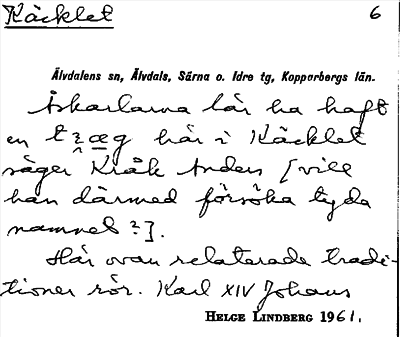 Käcklet 6
Älvdalens sn, Älvdals, Särna o. Idre tg, Kopparbergs län.
Åskarlarna lär ha haft
en träg här i Käcklet
säger Kråk Anders [vill
han därmed försöka tyda
namnet?].
Här ovan relaterade tradi-
tioner rör. Karl XIV Johans
HELGE LINDBERG 1961.